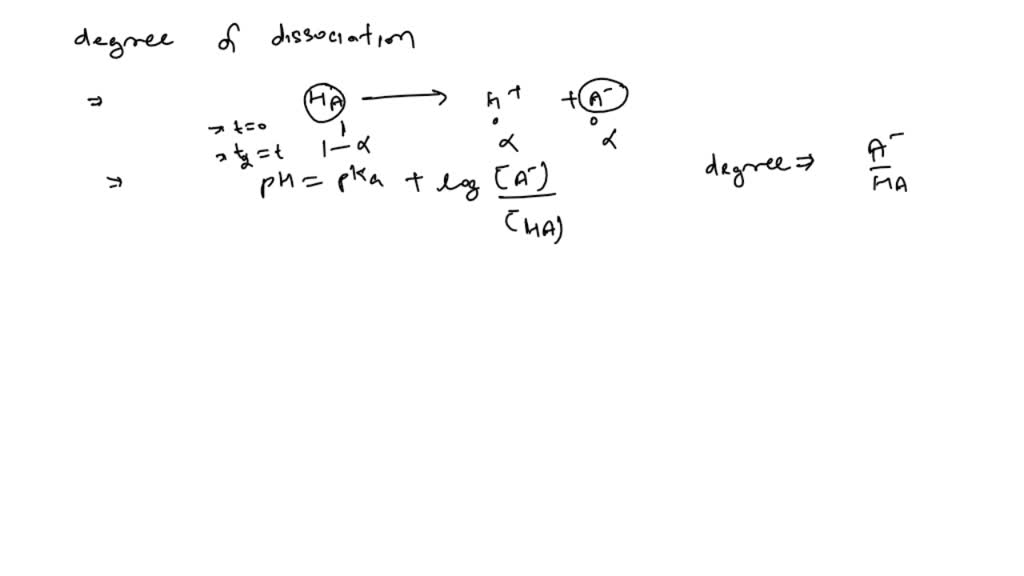 degree of dissociation
⇒ HA ⟶ H+ + A-
→ t=0 1 0 0
→ t2 = t 1-α α α
⇒ pH = pKa + log [A-] / [HA]
degree ⇒ A- / HA